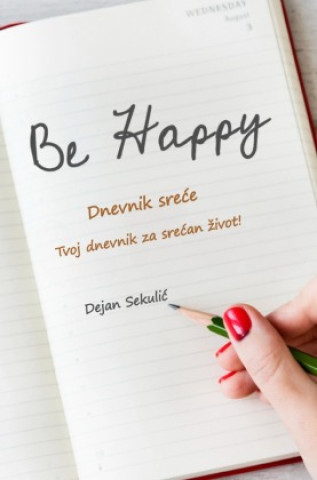 WEDNESDAY
August
3
Be Happy
Dnevnik sreće
Tvoj dnevnik za srećan život!
Dejan Sekulić